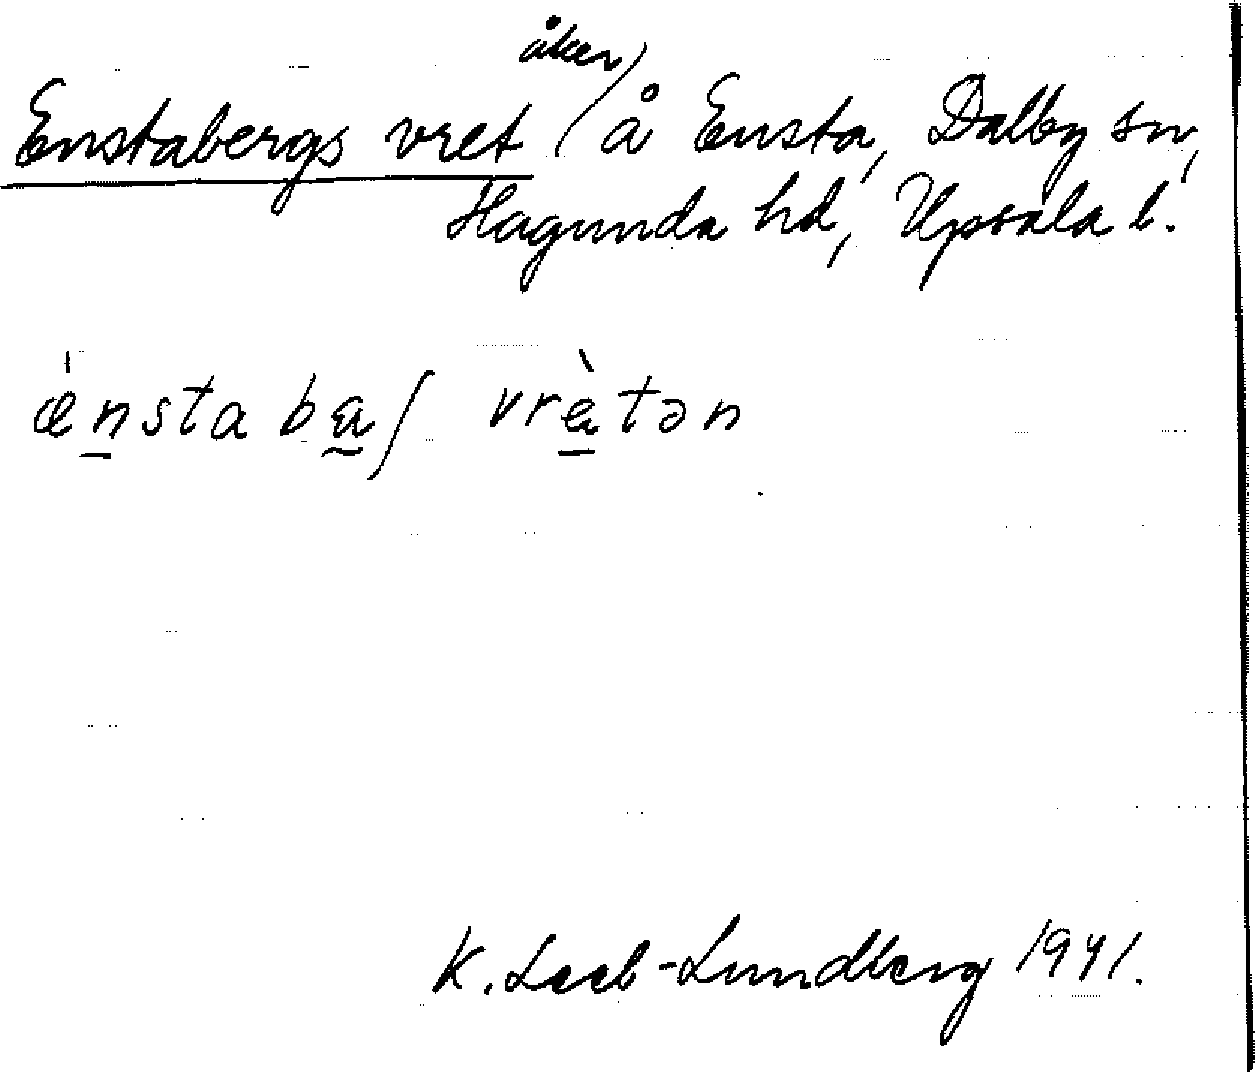 Enstabergs vret åker å Ensta, Dalby sn,
Hagunda hd, Upsala l.
ǽnsta bæʃ vrætən
K. Leeb-Lundberg 1941.